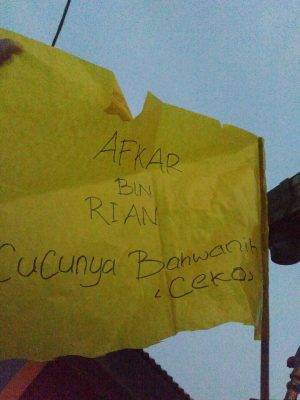 AFKAR
BIN
RIAN
Cucunya Banwanih
"Ceko"